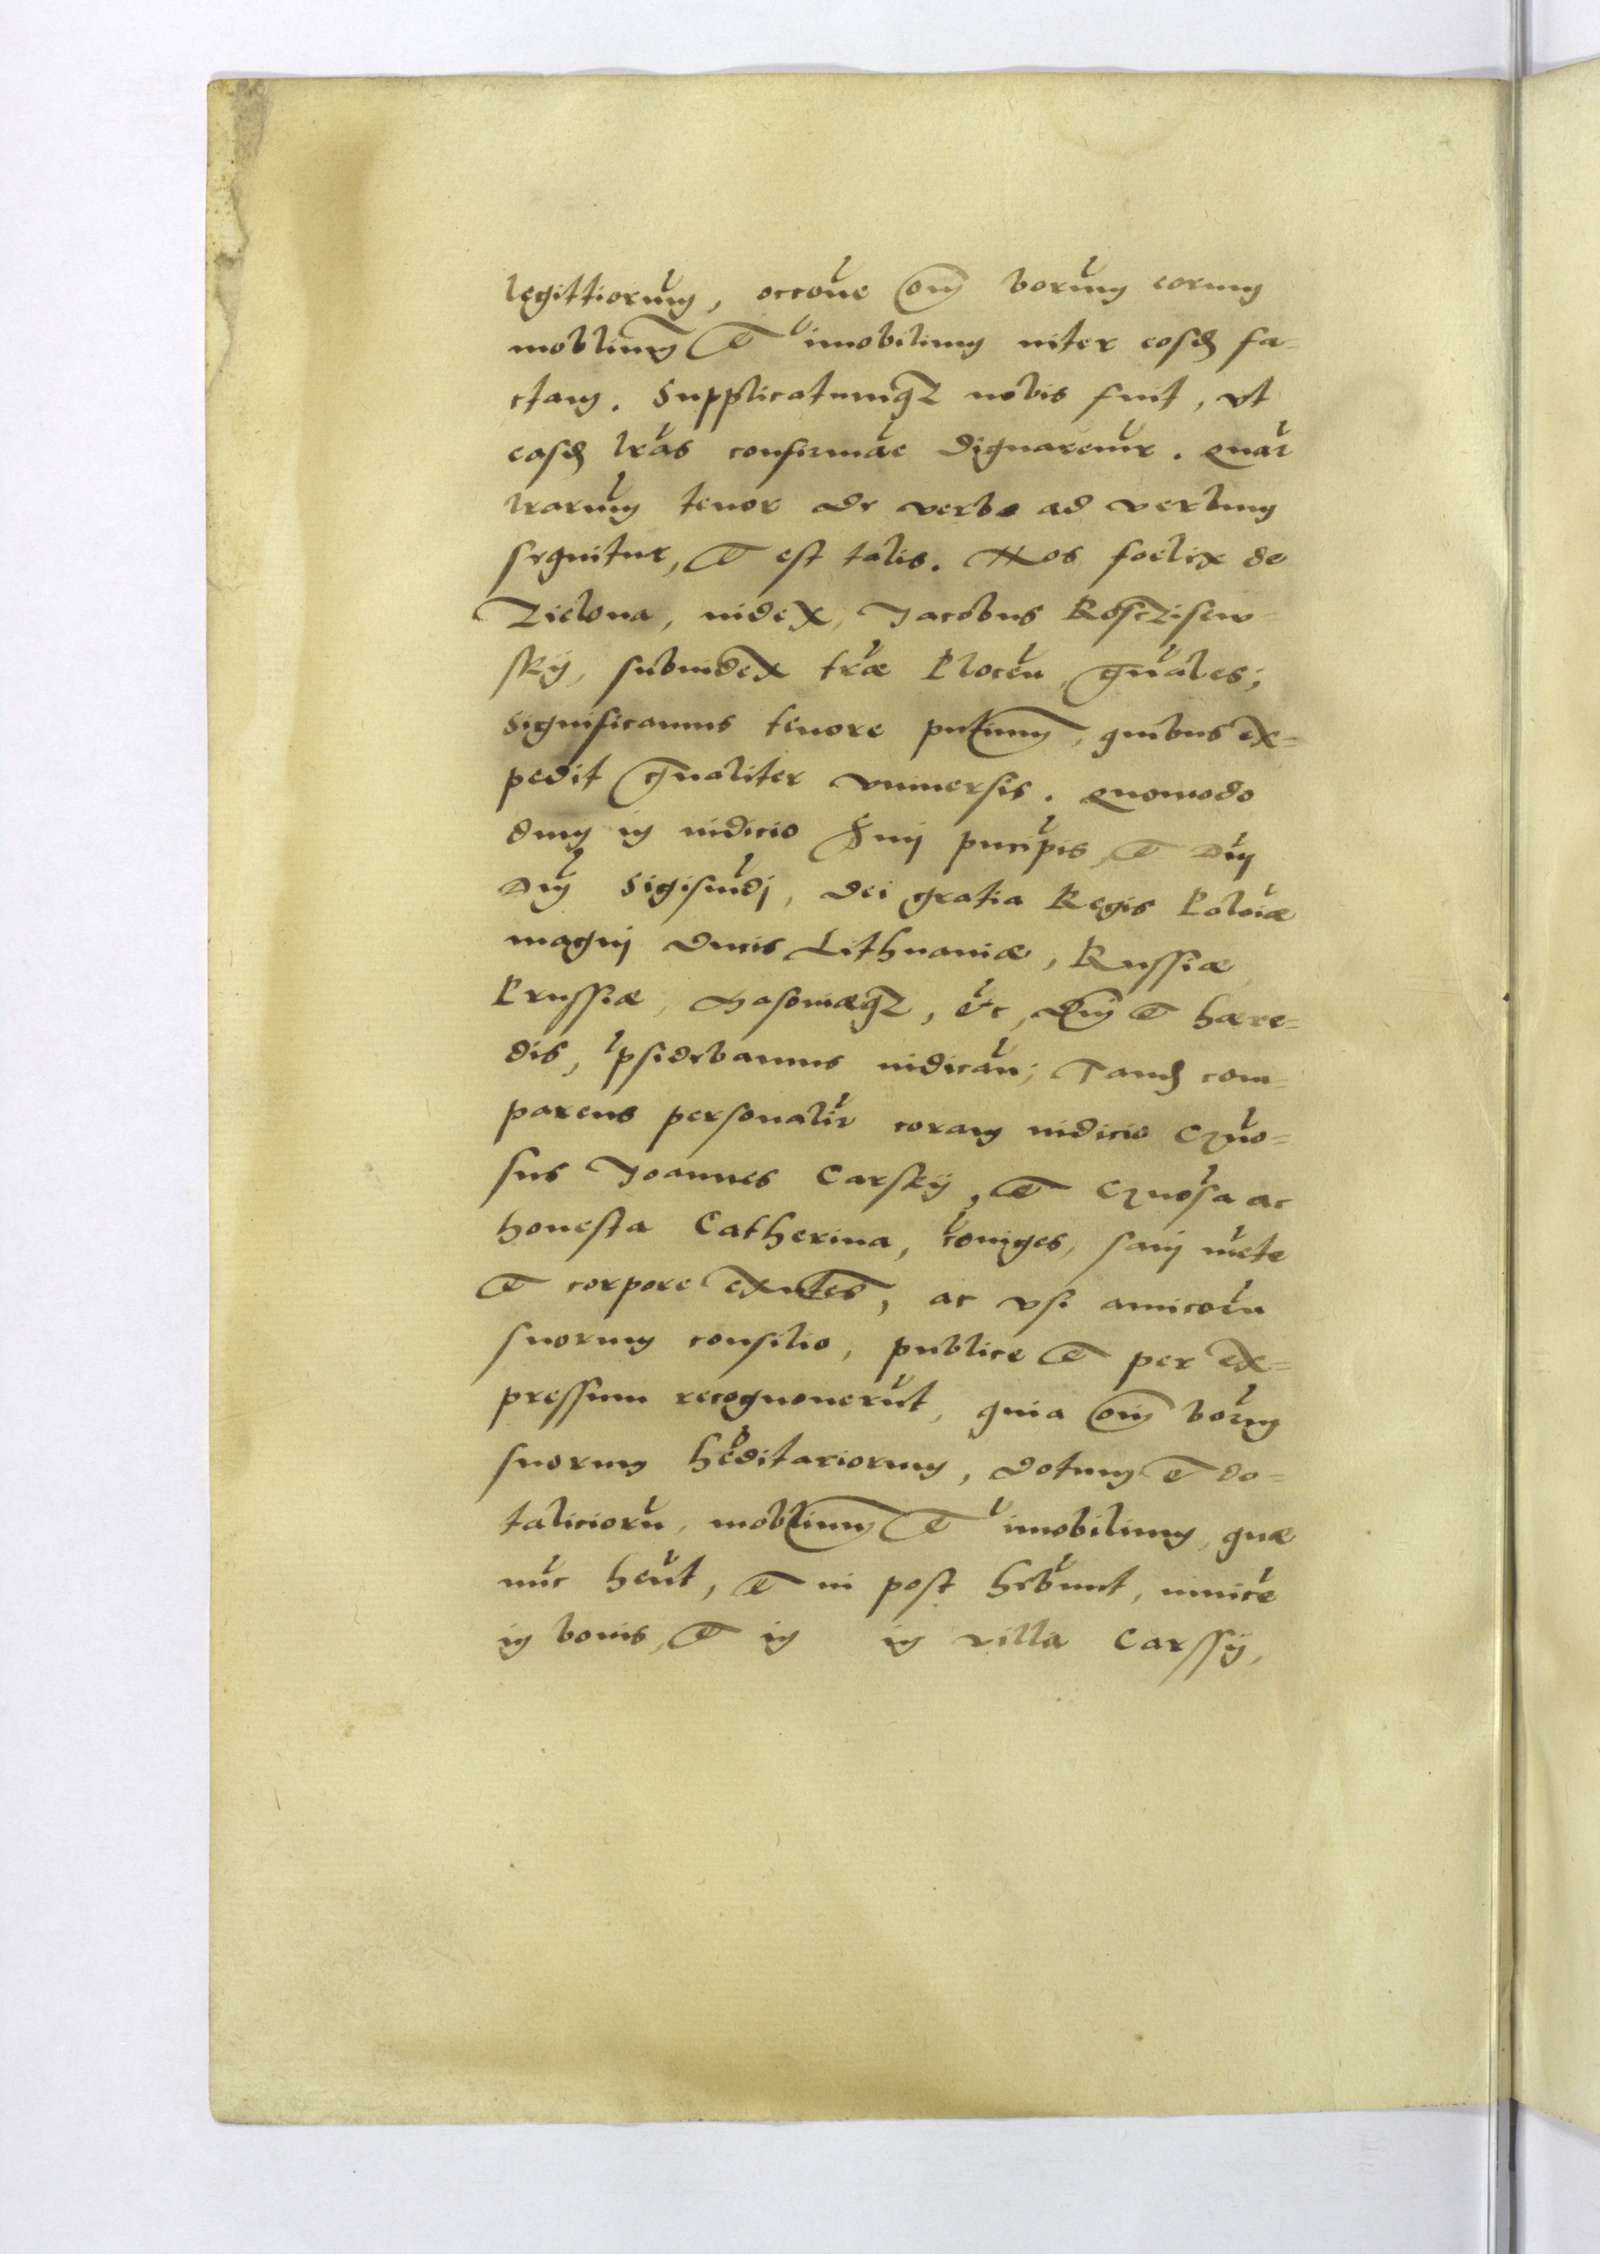 legittiorum, occone om̄ borum eorum
moblium et imobilium inter eosd fa-
ctam. Supplicatumq₃ nobis fuit, vt
easd lras confirmae dignaremur. Quar
lrarum tenor de verbo ad verbum
sequitur, et est talis. Nos foelix de
Zielona, iudex, Jacobus Koscziszew-
skÿ, subiudex træ Plocen, gnales;
Significamus tenore pntium, quibus ex-
pedit gnaliter vniuersis. Quomodo
dum in iudicio Smj pncipis et Dnj
Dnj Sigismdj, dei gratia Regis Poloiæ
magnj Ducis Lithuaniæ, Russiæ
Prussiæ, Masouiæq₃, etc, Dnj et hære-
dis, psidebamus iudican; Tand com-
parens personalir coram iudicio Gno-
sus Joannes Carskÿ, et Gnosa ac
honesta Catherina, coniges, sanj mete
et corpore exntes, ac vsi amicoru
suorum consilio, publice et per ex-
pressum recognouerut, quia om̄ borum
suorum hæditariorum, dotum et do-
talicioru, moblium et imobilium, quæ
nuc hent, et in post hebunt, vnuice
in bonis, et in in villa Carssÿ,